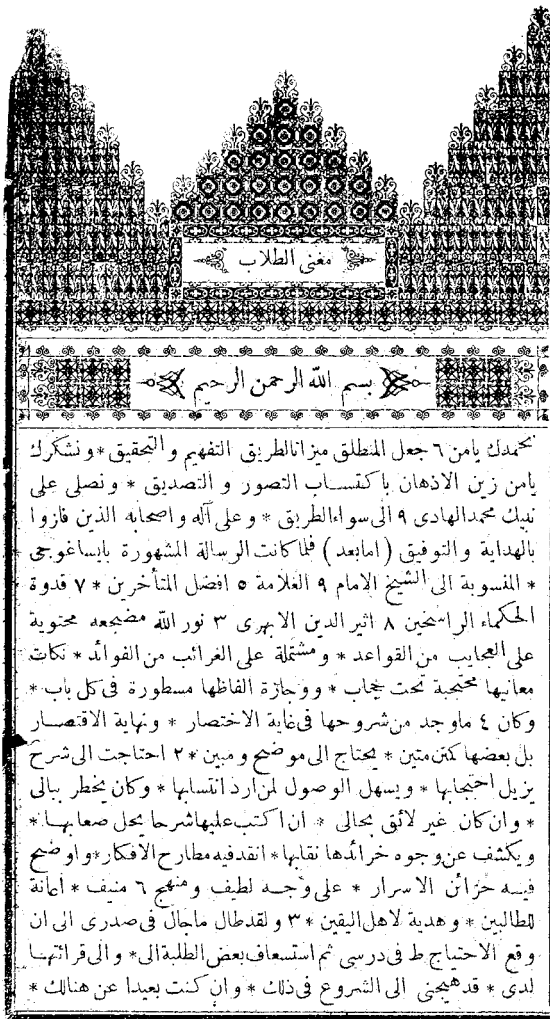 مغنى الطلاب
بسم الله الرحمن الرحيم
نحمدك يامن ٦ جعل المنطلق ميزانالطريق التفهيم والتحقيق * ونشكرك
يامن زين الاذهان باكتساب التصور و التصديق * ونصلى على
نبيك محمدالهادى ٩ الى سواءالطريق * وعلى آله واصحابه الذين فازوا
بالهداية والتوفيق ( امابعد ) فلما كانت الرسالة المشهورة بايساغوجى
* المنسوبة الى الشيخ الامام ٩ العلامة ٥ افضل المتأخرين * ٧ قدوة
الحكماء الراسخين ٨ اثير الدين الابهرى ٣ نور الله مضجعه محتوية
على العجايب من القواعد * ومشتملة على الغرائب من الفوائد * نكات
معانيها محتجبة تحت حجاب * ووجازة الفاظها مسطورة فى كل باب *
وكان ٤ ماوجد من شروحها فى غاية الاختصار * ونهاية الاقتصار
بل بعضها كمتن متين * يحتاج الى موضح ومبين * ٢ احتاجت الى شرح
يزيل احتجابها * ويسهل الوصول لمن ارد انتسابها * وكان يخطر ببالى
* وان كان غير لائق بحالى * ان اكتب عليها شرحا يحل صعابها *
ويكشف عن وجوه خرائدها نقابها * انقد فيه مطارح الافكار * واوضح
فيه خزائن الاسرار * على وجه لطيف ومنهج ٦ منيف * اعانة
للطالبين * وهدية لاهل اليقين * ٣ ولقد طال ماجال فى صدرى الى ان
وقع الاحتياج ط فى درسى ثم استسعاف بعض الطلبة الى * والى قرائتها
لدى * قد هيجنى الى الشروع فى ذلك * وان كنت بعيدا عن هنالك *